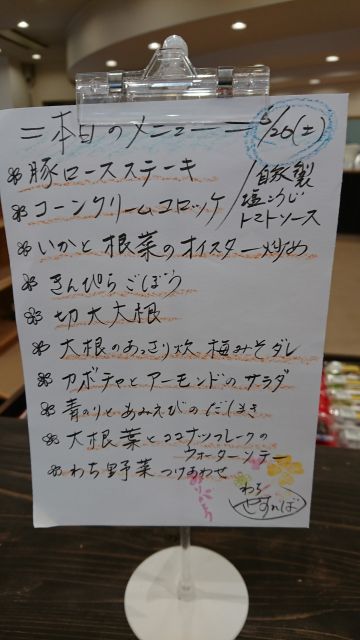 =本日のメニュー= 5/26(土)
豚ロースステーキ
コーンクリームコロッケ/自家製塩こうじトマトソース
いかと根菜のオイスター炒め
きんぴらごぼう
切大大根
大根のあっさり炊 梅みそダレ
カボチャとアーモンドのサラダ
青のりとあみえびのだしまき
大根葉とココナッツフレークの
ウォーターンテー
わち野菜つけあわせ